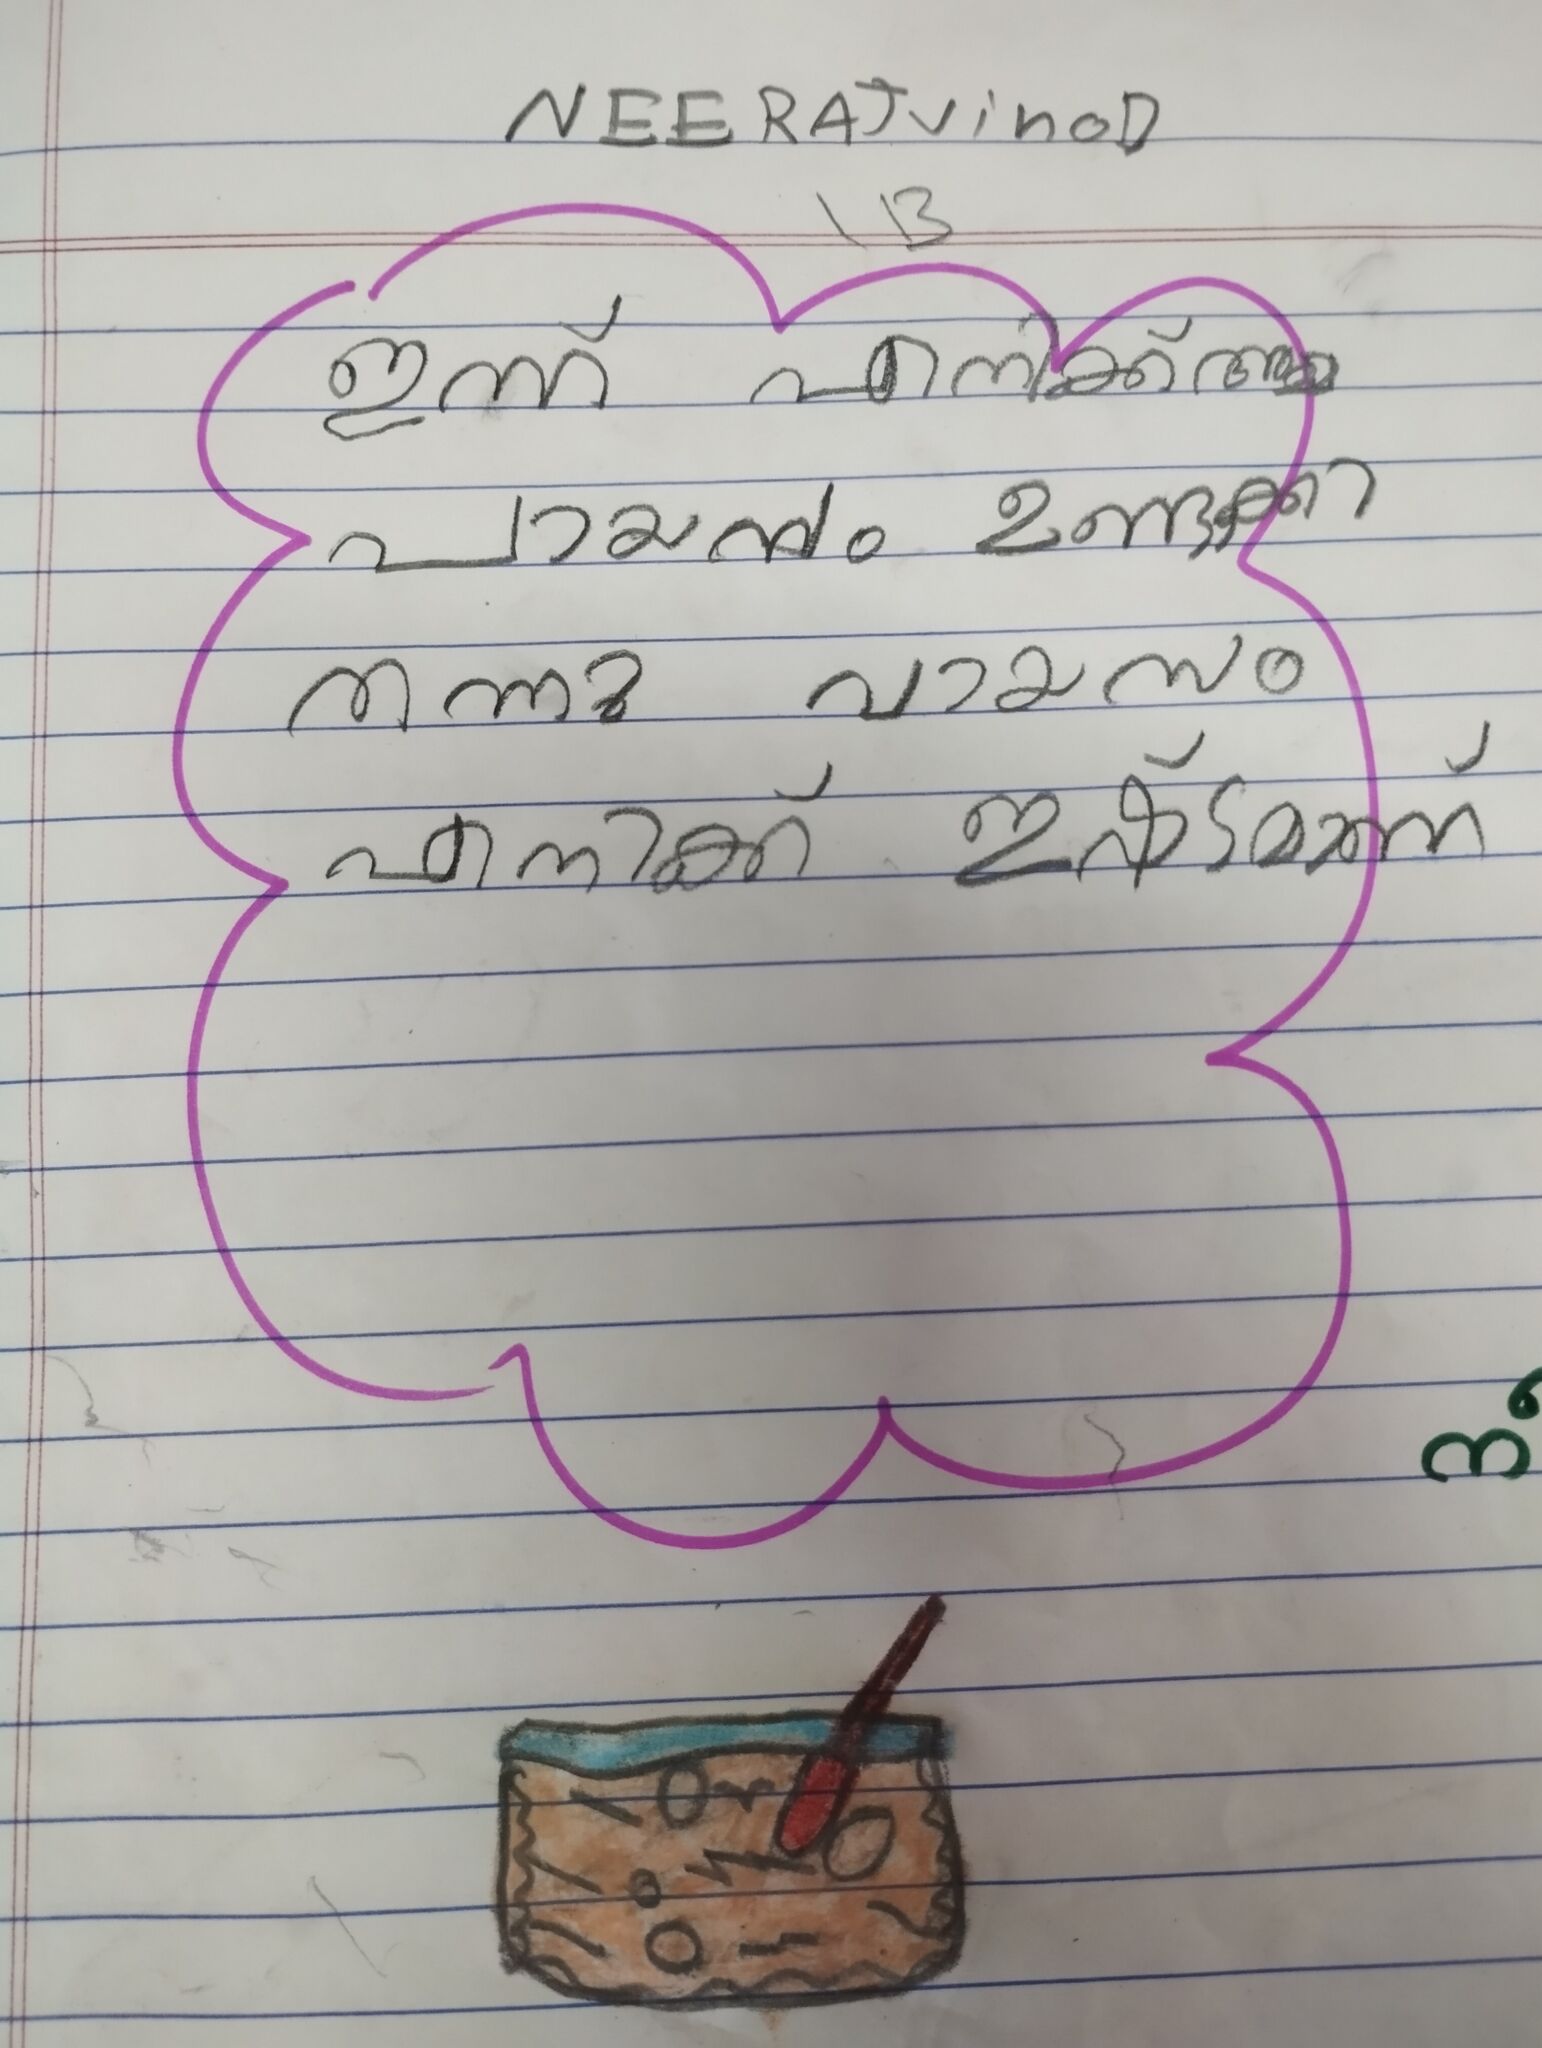 NEERAJ VinoD
1B
ഇന്ന് എനിക്ക് അമ്മ
പായസം ഉണ്ടാക്കി
തന്നു പായസം
എനിക്ക് ഇഷ്ടമാണ്